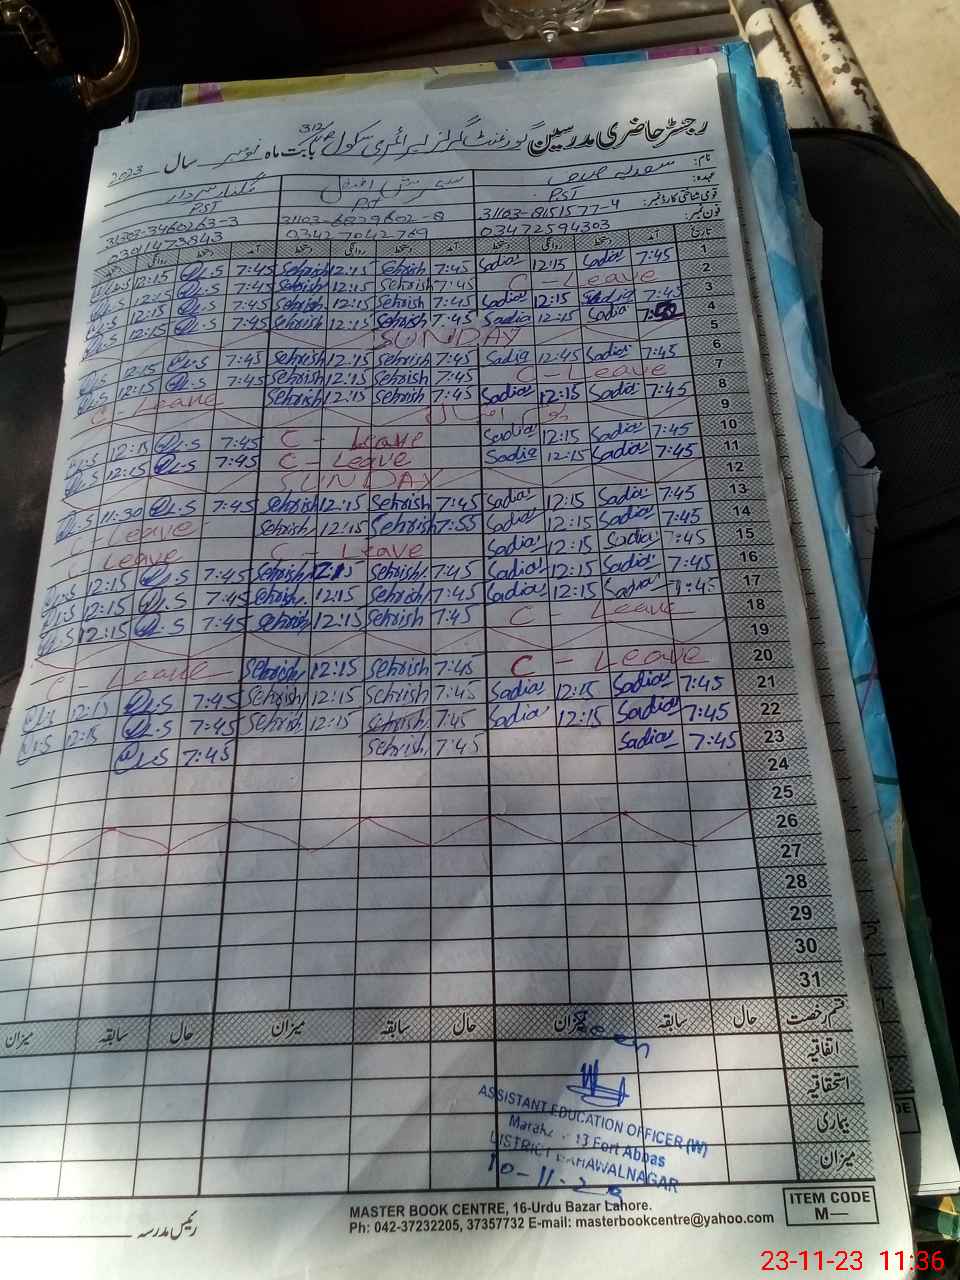 رجسٹر حاضری مدرسین گورنمنٹ گرلز پرائمری سکول 312 بابت ماہ نومبر سال 2023
نام: سعدیہ
عہدہ: PST PST PST
قومی شناختی کارڈ نمبر: 31103-8151577-4 31103-6829602-8 31303-3460263-3
فون نمبر: 03472594303 03427042769 03011473843
تاریخ آمد دستخط روانگی دستخط آمد دستخط روانگی دستخط آمد دستخط روانگی دستخط
1 7:45 Sadia 12:15 Sadia 7:45 Sehrish 12:15 Sehrish 7:45 12:15
2 C - Leave 7:45 Sehrish 12:15 Sehrish 7:45 12:15
3 7:45 Sadia 12:15 Sadia 7:45 Sehrish 12:15 Sehrish 7:45 12:15
4 Sadia 12:15 Sadia 7:45 Sehrish 12:15 Sehrish 7:45 12:15
5 SUNDAY
6 7:45 Sadia 12:45 Sadia 7:45 Sehrish 12:15 Sehrish 7:45 12:15
7 C - Leave 7:45 Sehrish 12:15 Sehrish 7:45 12:15
8 7:45 Sadia 12:15 Sadia 7:45 Sehrish 12:15 Sehrish C - Leave
9
10 7:45 Sadia 12:15 Sadia C - Leave 7:45 12:15
11 7:45 Sadia 12:15 Sadia C - Leave 7:45 12:15
12 SUNDAY
13 7:45 Sadia 12:15 Sadia 7:45 Sehrish 12:15 Sehrish 7:45 11:30
14 7:45 Sadia 12:15 Sadia 7:55 Sehrish 12:15 Sehrish C - Leave
15 7:45 Sadia 12:15 Sadia C - Leave C Leave
16 7:45 Sadia 12:15 Sadia 7:45 Sehrish 12:15 Sehrish 7:45 12:15
17 7:45 Sadia 12:15 Sadia 7:45 Sehrish 12:15 Sehrish 7:45 12:15
18 C - Leave 7:45 Sehrish 12:15 Sehrish 7:45 12:15
19
20 C - Leave 7:45 Sehrish 12:15 Sehrish C - Leave
21 7:45 Sadia 12:15 Sadia 7:45 Sehrish 12:15 Sehrish 7:45 12:15
22 7:45 Sadia 12:15 Sadia 7:45 Sehrish 12:15 Sehrish 7:45 12:15
23 7:45 Sadia 7:45 Sehrish 7:45
24
25
26
27
28
29
30
31
قسم رخصت حال سابقہ میزان حال سابقہ میزان حال سابقہ میزان
اتفاقیہ
استحقاقیہ
بیماری
میزان
Seen
ASSISTANT EDUCATION OFFICER (W)
Fort Abbas
DISTRICT BAHAWALNAGAR
رئیس مدرسہ
MASTER BOOK CENTRE, 16-Urdu Bazar Lahore.
Ph: 042-37232205, 37357732 E-mail: masterbookcentre@yahoo.com
ITEM CODE
M—
23-11-23 11:36